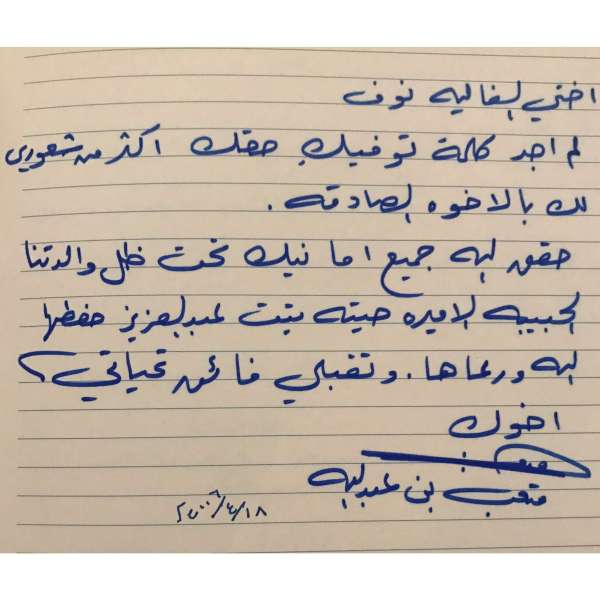 اختي الغاليه نوف
لم اجد كلمة توفيك حقك اكثر من شعوري
لك بالاخوه الصادقه .
حقق الله جميع امانيك تحت ظل والدتنا
الحبيبه الاميره حيته بنت عبدالعزيز حفظها
الله ورعاها . وتقبلي فائق تحياتي ؟
اخوك
متعب بن عبدالله